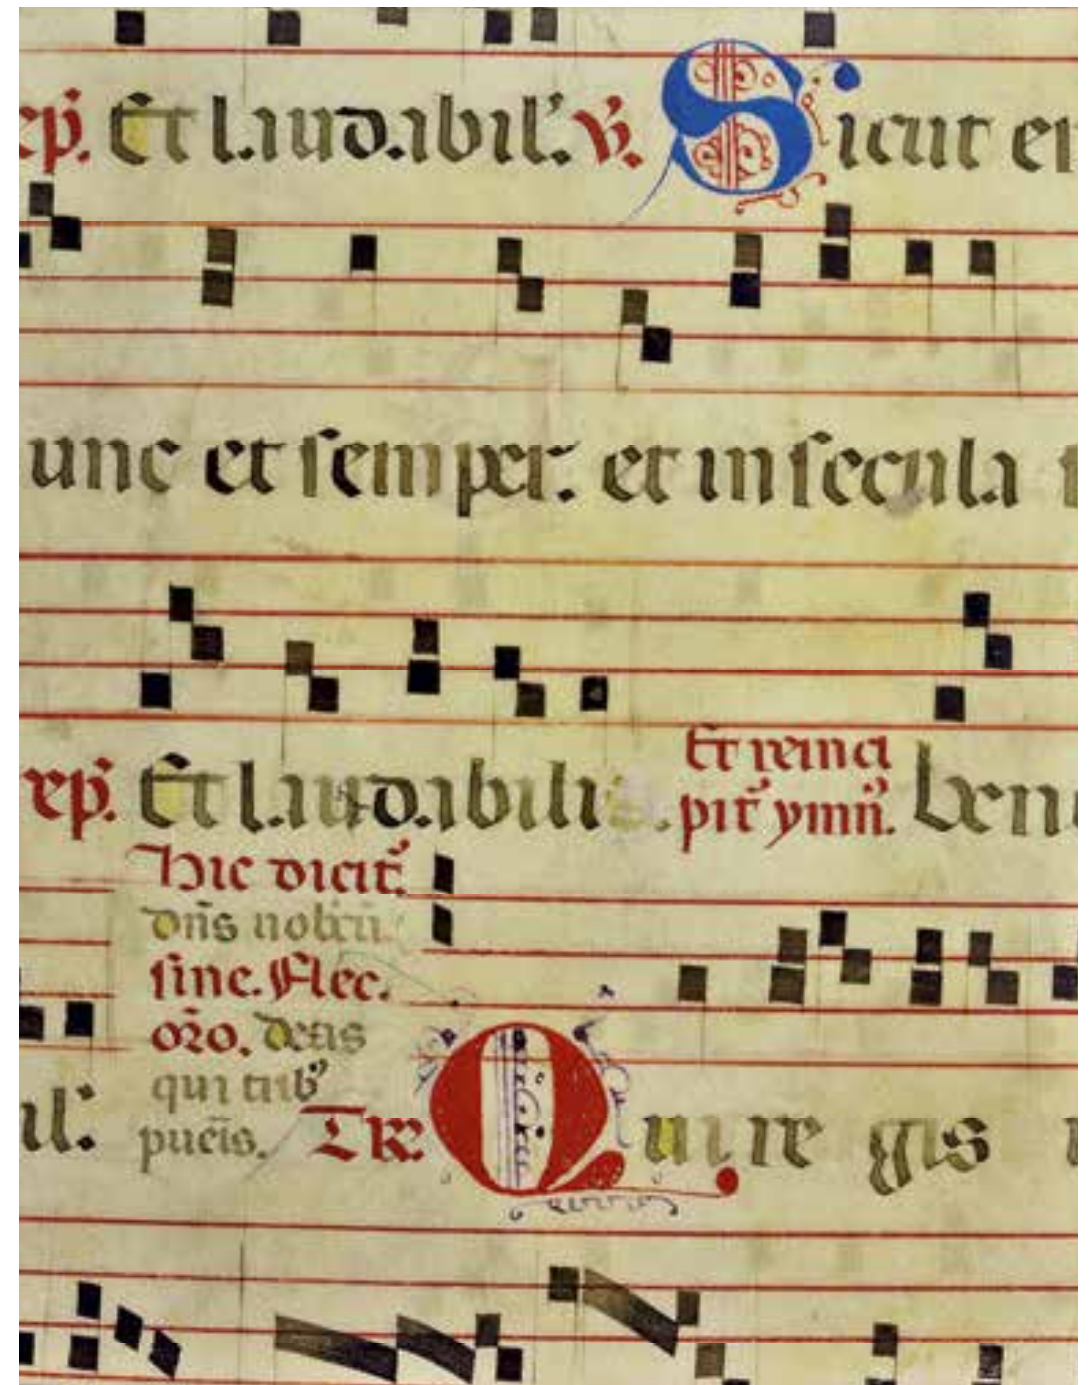 ep̄. Et laudabil'. v̄. Sicut er
unc et semper. et in secula
rep̄. Et laudabilis. Et reinci
pit̄ ymn̄. bene
Hic dicit̄
dn̄s nobcū
sine. Flec.
or̄o. Deus
qui trib'
pueīs.
il'. TR. Qui re gis